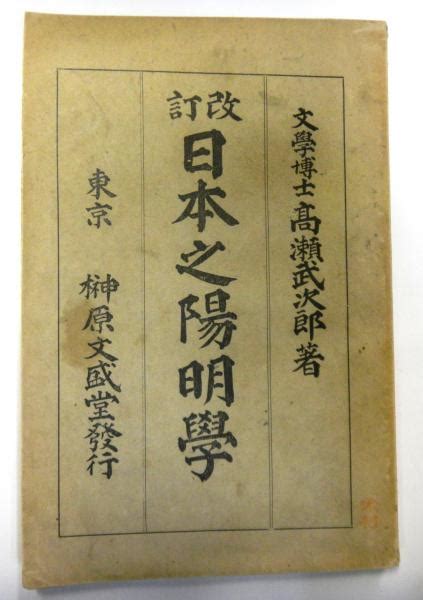 文學博士髙瀨武次郎著
改訂
日本之陽明學
東京 榊原文盛堂發行